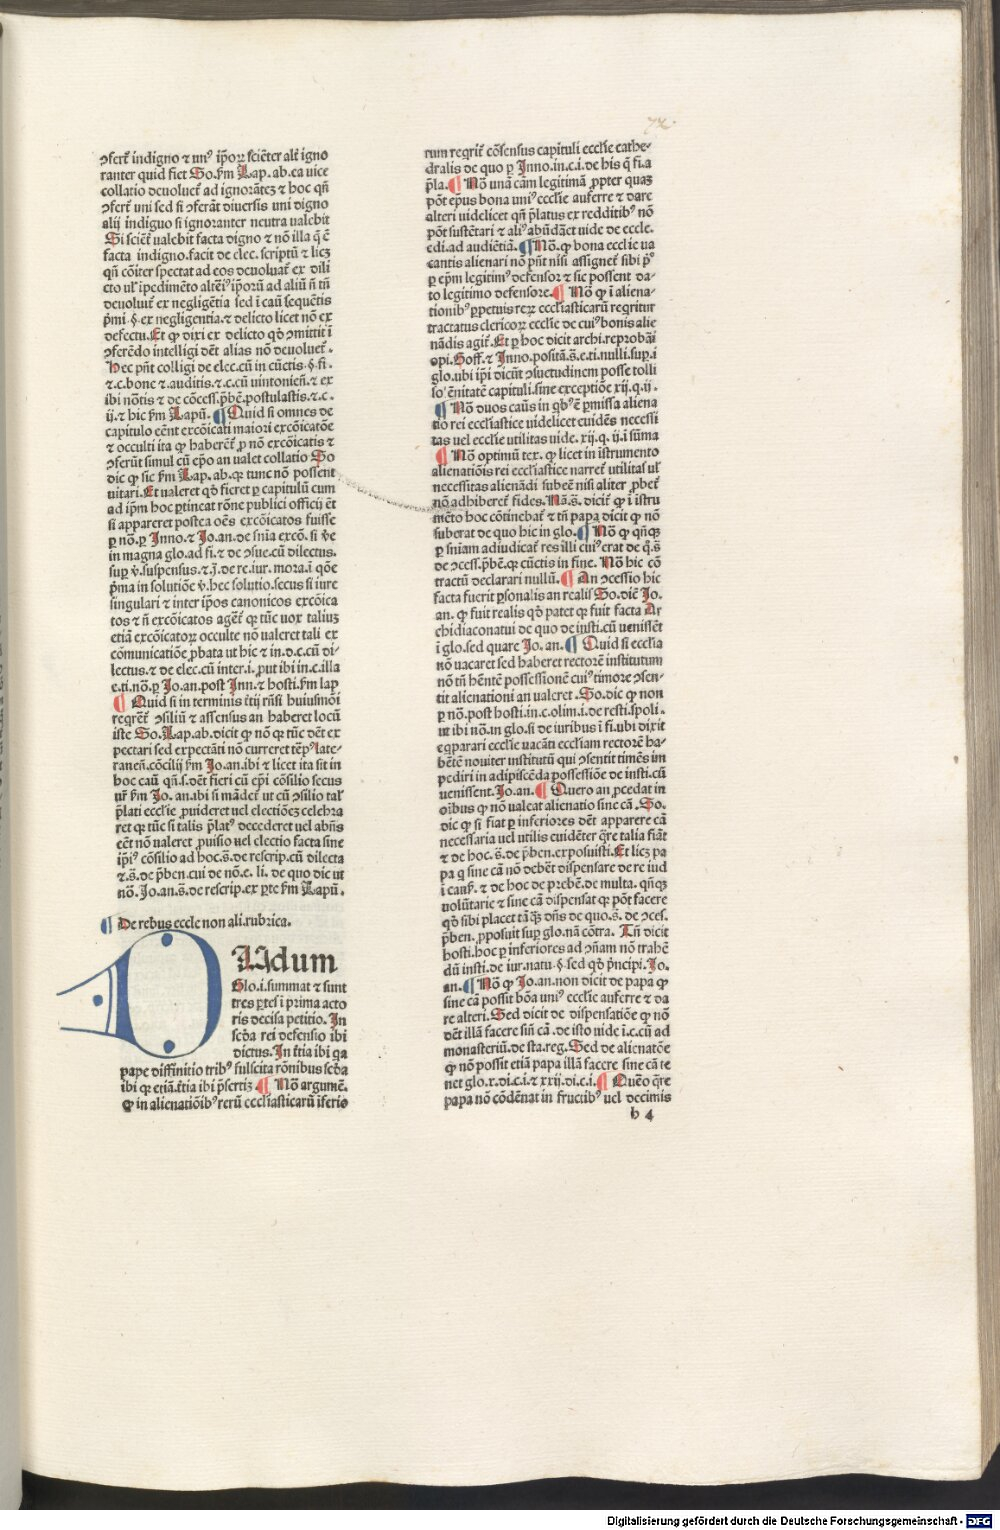 ↄferr̄ indigno ⁊ unꝰ ip̄oꝝ ſciēter alr̄ igno
ranter quid fiet So. ẜm Lap. ab. ea uice
collatio deuoluet̄ ad ignorātez ⁊ hoc qn̄
ↄferr̄ uni sed si ↄferāt diuersis uni digno
alij indiguo si ignoranter neutra ualebit
Si sciēt̄ valebit facta digno ⁊ nō illa q̄ ē
facta indigno. facit de elec. scriptū ⁊ licz
qn̄ cōiter spectat ad eos deuoluat̄ ex dili
cto ul' ipedimēto alteriꝰ ip̄orū ad aliū n̄ tn̄
deuoluit̄ ex negligētia sed ī caū sequētis
p̄mi .§. ex negligentia. ⁊ delicto licet nō ex
defectu. Et ꝙ dixi ex delicto qd̄ ↄmittit ī
ↄferēdo intelligi dēt alias nō deuoluet̄.
Hec pn̄t colligi de elec. cū in cūctis .§. fi.
⁊.c. bone ⁊ auditis. ⁊.c. cū uintonien̄. ⁊ ex
ibi nōtis ⁊ de cōcess. p̄bē. postulastis. ⁊.c.
ij. ⁊ hic ẜm Lapū. ¶ Quid si omnes de
capitulo eēnt excōicati maiori excōicatōe
⁊ occulti ita ꝙ haberēt̄ ꝓ nō excōicatis ⁊
ↄferūt simul cū ep̄o an valet collatio So
dic ꝙ sic ẜm Lap. ab. qꝛ tunc nō possent
vitari. Et valeret qd̄ fieret ꝑ capitulū cum
ad ip̄m hoc ꝑtineat rōne publici officij ēt
si appareret postea oēs excōicatos fuisse
ꝑ nō. ꝑ Inno. ⁊ Jo. an. de snīa excō. si ve
in magna glo. ad fi. ⁊ de ↄsue. cū dilectus.
sup̄ v̄. suspensus. ⁊.j. de re. iur. mora. ī qōe
p̄ma in solutiōe v̄. hec solutio. secus si iure
singulari ⁊ inter ip̄os canonicos excōica
tos ⁊ n̄ excōicatos agēt̄ qꝛ tūc uox taliuz
etiā excōicatoꝝ occulte nō valeret tali ex
cōmunicatiōe ꝓbata ut hic ⁊ in. d. c. cū di-
lectus. ⁊ de elec. cū inter. i. ꝓut ibi in. c. illa
e. ti. nō. ꝑ Jo. an. post Inn. ⁊ hosti. ẜm lap
¶ Quid si in terminis ōtij rn̄si huiusmōi
reqrēt̄ ↄsiliū ⁊ assensus an haberet locū
iste So. Lap. ab. dicit ꝙ nō qꝛ tūc dēt ex
pectari sed expectāti nō curreret tēpꝰ late-
ranen̄. cōcilij ẜm Jo. an. ibi ⁊ licet ita sit in
hoc caū qn̄. s. dēt fieri cū ep̄i cōsilio secus
ur̄ ẜm Jo. an. ibi si mādet̄ ut cū ↄsilio tal'
p̄lati eccl'ie ꝓuideret uel electiōez celebra
ret qꝛ tūc si talis p̄latꝰ decederet uel abn̄s
eēt nō valeret ꝓuisio uel electio facta sine
ip̄iꝰ cōsilio ad hoc. s̄. de rescrip. cū dilecta
⁊. s̄. de p̄ben. cui de nō. e. li. de quo dic ut
nō. Jo. an. s̄. de rescrip. ex ꝑte ẜm Lapū.
¶ De rebus eccle non ali. rubrica.
DUdum
Glo. i. summat ⁊ sunt
tres ꝑtes ī prima acto
ris decisa petitio. In
sc̄da rei defensio ibi
dictus. In t̄tia ibi qa
pape diffinitio tribꝰ fulcita rōnibus sc̄da
ibi qꝛ etiā. t̄tia ibi p̄sertiz ¶ Nō argumē.
ꝙ in alienatiōibꝰ rerū eccl'iasticarū īferio
72.
rum reqrit̄ cōsensus capituli eccl'ie cathe-
dralis de quo ꝑ Inno. in. c. i. de his q̄ fi. a
p̄la. ¶ Nō unā cām legitimā ꝓpter quaz
pōt ep̄us bona uniꝰ eccl'ie auferre ⁊ dare
alteri uidelicet qn̄ p̄latus ex redditibꝰ nō
pōt sustētari ⁊ aliꝰ abūdāet uide de eccle.
edi. ad audiētiā. ¶ Nō. ꝙ bona eccl'ie ua
cantis alienari nō pn̄t nisi assignet̄ sibi p̄ꝰ
ꝑ ep̄m legitimꝰ defensor ⁊ sic possent da-
to legitimo defensore. ¶ Nō ꝙ ī aliena-
tionibꝰ ꝑpetuis reꝝ eccl'iasticarū reqritur
tractatus clericoꝝ eccl'ie de cuiꝰ bonis alie
nādis agit̄. Et ꝑ hoc dicit archi. reprobāi
opi. Goff. ⁊ Inno. positā. s̄. e. ti. nulli. sup̄. i
glo. ubi ip̄i dicūt ↄsuetudinem posse tolli
solēnitatē capituli. sine exceptiōe xij. q. ij.
¶ Nō duos caūs in qbꝰ ē ꝑmissa aliena
tio rei eccl'iastice uidelicet euidēs necessi
tas uel eccl'ie utilitas uide. xij. q. ij. i sūma
¶ Nō optimū tex. ꝙ licet in īstrumento
alienatiōis rei eccl'iastice narret̄ utilitas ul'
necessitas alienādi subeē nisi aliter ꝓbet̄
nō adhiberet̄ fides. Na. s̄. dicit̄ ꝙ ī īstru
mēto hoc cōtinebat̄ ⁊ tn̄ papa dicit ꝙ nō
suberat de quo hic in glo. ¶ Nō ꝙ qn̄qꝫ
ꝑ sniam adiudicat̄ res illi cuiꝰ erat de q̄. s̄
de ↄcess. p̄bē. qꝛ cūctis in fine. Nō hic cō
tractū declarari nullū. ¶ An ↄcessio hic
facta fuerit ꝑsonalis an realis So. dic̄ Jo.
an. ꝙ fuit realis qd̄ patet qꝛ fuit facta Ar
chidiaconatui de quo de insti. cū uenissēt
ī glo. sed quare Jo. an. ¶ Quid si eccl'ia
nō uacaret sed haberet rectorē institutum
nō tn̄ hēntē possessionē cuiꝰ timore ↄsen-
tit alienationi an valeret. So. dic ꝙ non
ꝑ nō. post hosti. in. c. olim. i. de resti. spoli.
ut ibi nō. in glo. si de iuribus ī fi. ubi dixit
eqparari eccl'ie uacāti eccl'iam rectorē ha-
bētē nouiter institutū qui ↄsentit timēs im
pediri in adipiscēda possessiōe de insti. cū
uenissent. Jo. an. ¶ Quero an ꝓcedat in
oībus ꝙ nō valeat alienatio sine cā. So.
dic ꝙ si fiat ꝑ inferiores dēt apparere cā
necessaria uel utilis euidēter qr̄e talia fiāt
⁊ de hoc. s̄. de p̄ben. exposuisti. Et licz pa
pa q sine cā nō debēt dispensare de re iud
i cauſ. ⁊ de hoc de prebē. de multa. qn̄qꝫ
volūtarie ⁊ sine cā dispensat qꝛ pōt facere
qd̄ sibi placet tāqꝫ dn̄s de quo. s̄. de ↄces.
p̄ben. ꝓposuit sup̄ glo. nā cōtra. Tn̄ dicit
hosti. hoc ꝑ inferiores ad ↄn̄am nō trahē
dū insti. de iur. natu. §. sed qd̄ p̄ncipi. Jo.
an. ¶ Nō ꝙ Jo. an. non dicit de papa ꝙ
sine cā possit bōa uniꝰ eccl'ie auferre ⁊ da
re alteri. Sed dicit de dispensatiōe ꝙ nō
dēt illā facere sin̄ cā. de isto uide ī. c. cū ad
monasteriū. de sta. reg. Sed de alienatōe
ꝙ nō possit etiā papa illā facere sine cā te
net glo. x. di. c. i. ⁊ xxij. di. c. i. ¶ Quēo qr̄e
papa nō cōdēnat in fructibꝰ uel decimis
b 4
Digitalisierung gefördert durch die Deutsche Forschungsgemeinschaft - DFG